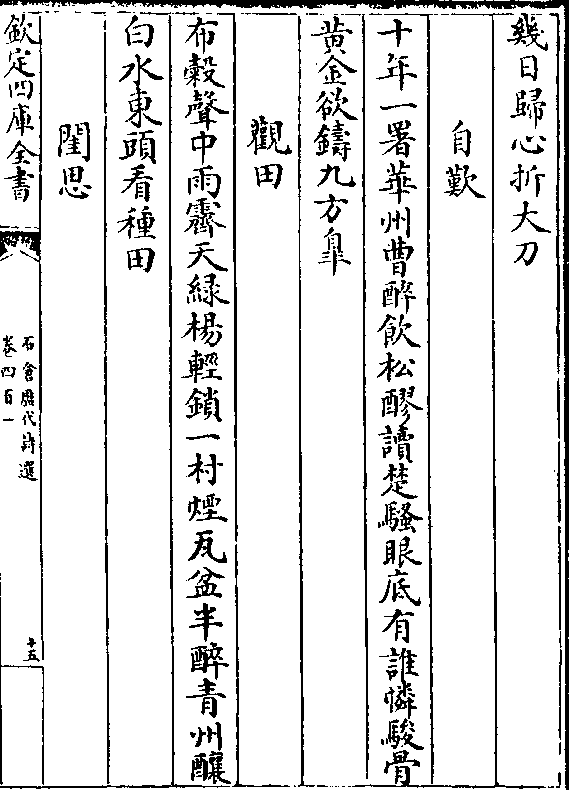 幾日歸心折大刀
自歎
十年一署華州曹醉飲松醪讀楚騷眼底有誰憐駿骨
黄金欲鑄九方臯
觀田
布穀聲中雨霽天緑楊輕鎖一村煙瓦盆半醉青州釀
白水東頭看種田
閨思
欽定四庫全書
石倉歴代詩選
卷四百一
十五